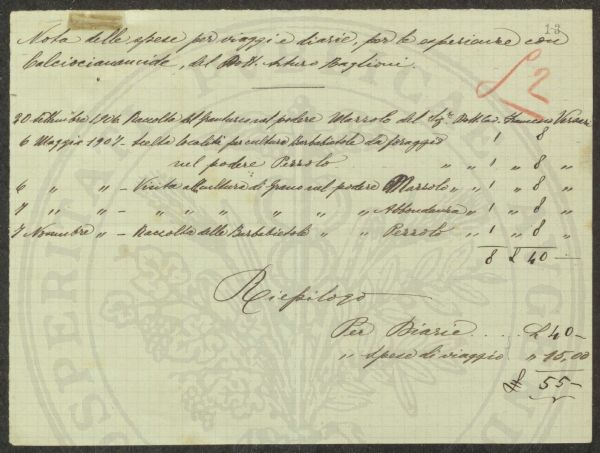 13
Nota delle spese per viaggi e diarie, per le esperienze con
Calciocianamide, del Dott. Arturo Baglioni.
£ 2
30 Settembre 1906 Raccolta del frantureo nel podere Marzolo del Sig. Dott. Cav. Francesco
6 Maggio 1907 - Scelta località per cultura Barbabietole da foraggio 1 8
nel podere Pezzolo " " 1 " 8 "
6 " " - Visita alla cultura di Grano nel podere Marzolo " " 1 " 8 "
7 " " - " " " " " " Abbondanza " " 1 " 8 "
7 Novembre " - Raccolta delle Barbabietole " " Pezzolo " " 1 " 8 "
8 £ 40 -
Riepilogo
Per Diarie . . . . £ 40 -
" spese di viaggio . " 15,00
£ 55 -